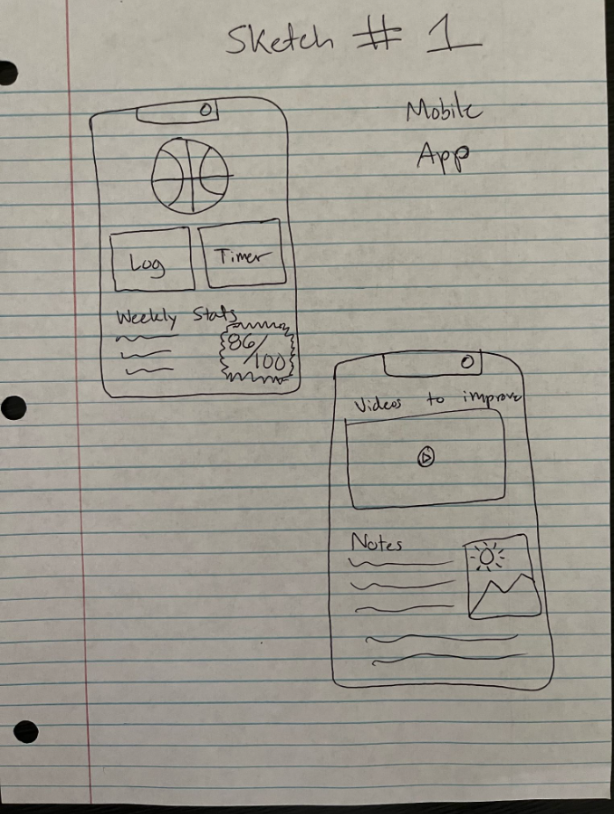 Sketch # 1
Mobile
App
Log
Timer
Weekly Stats
86/100
Videos to improve
Notes